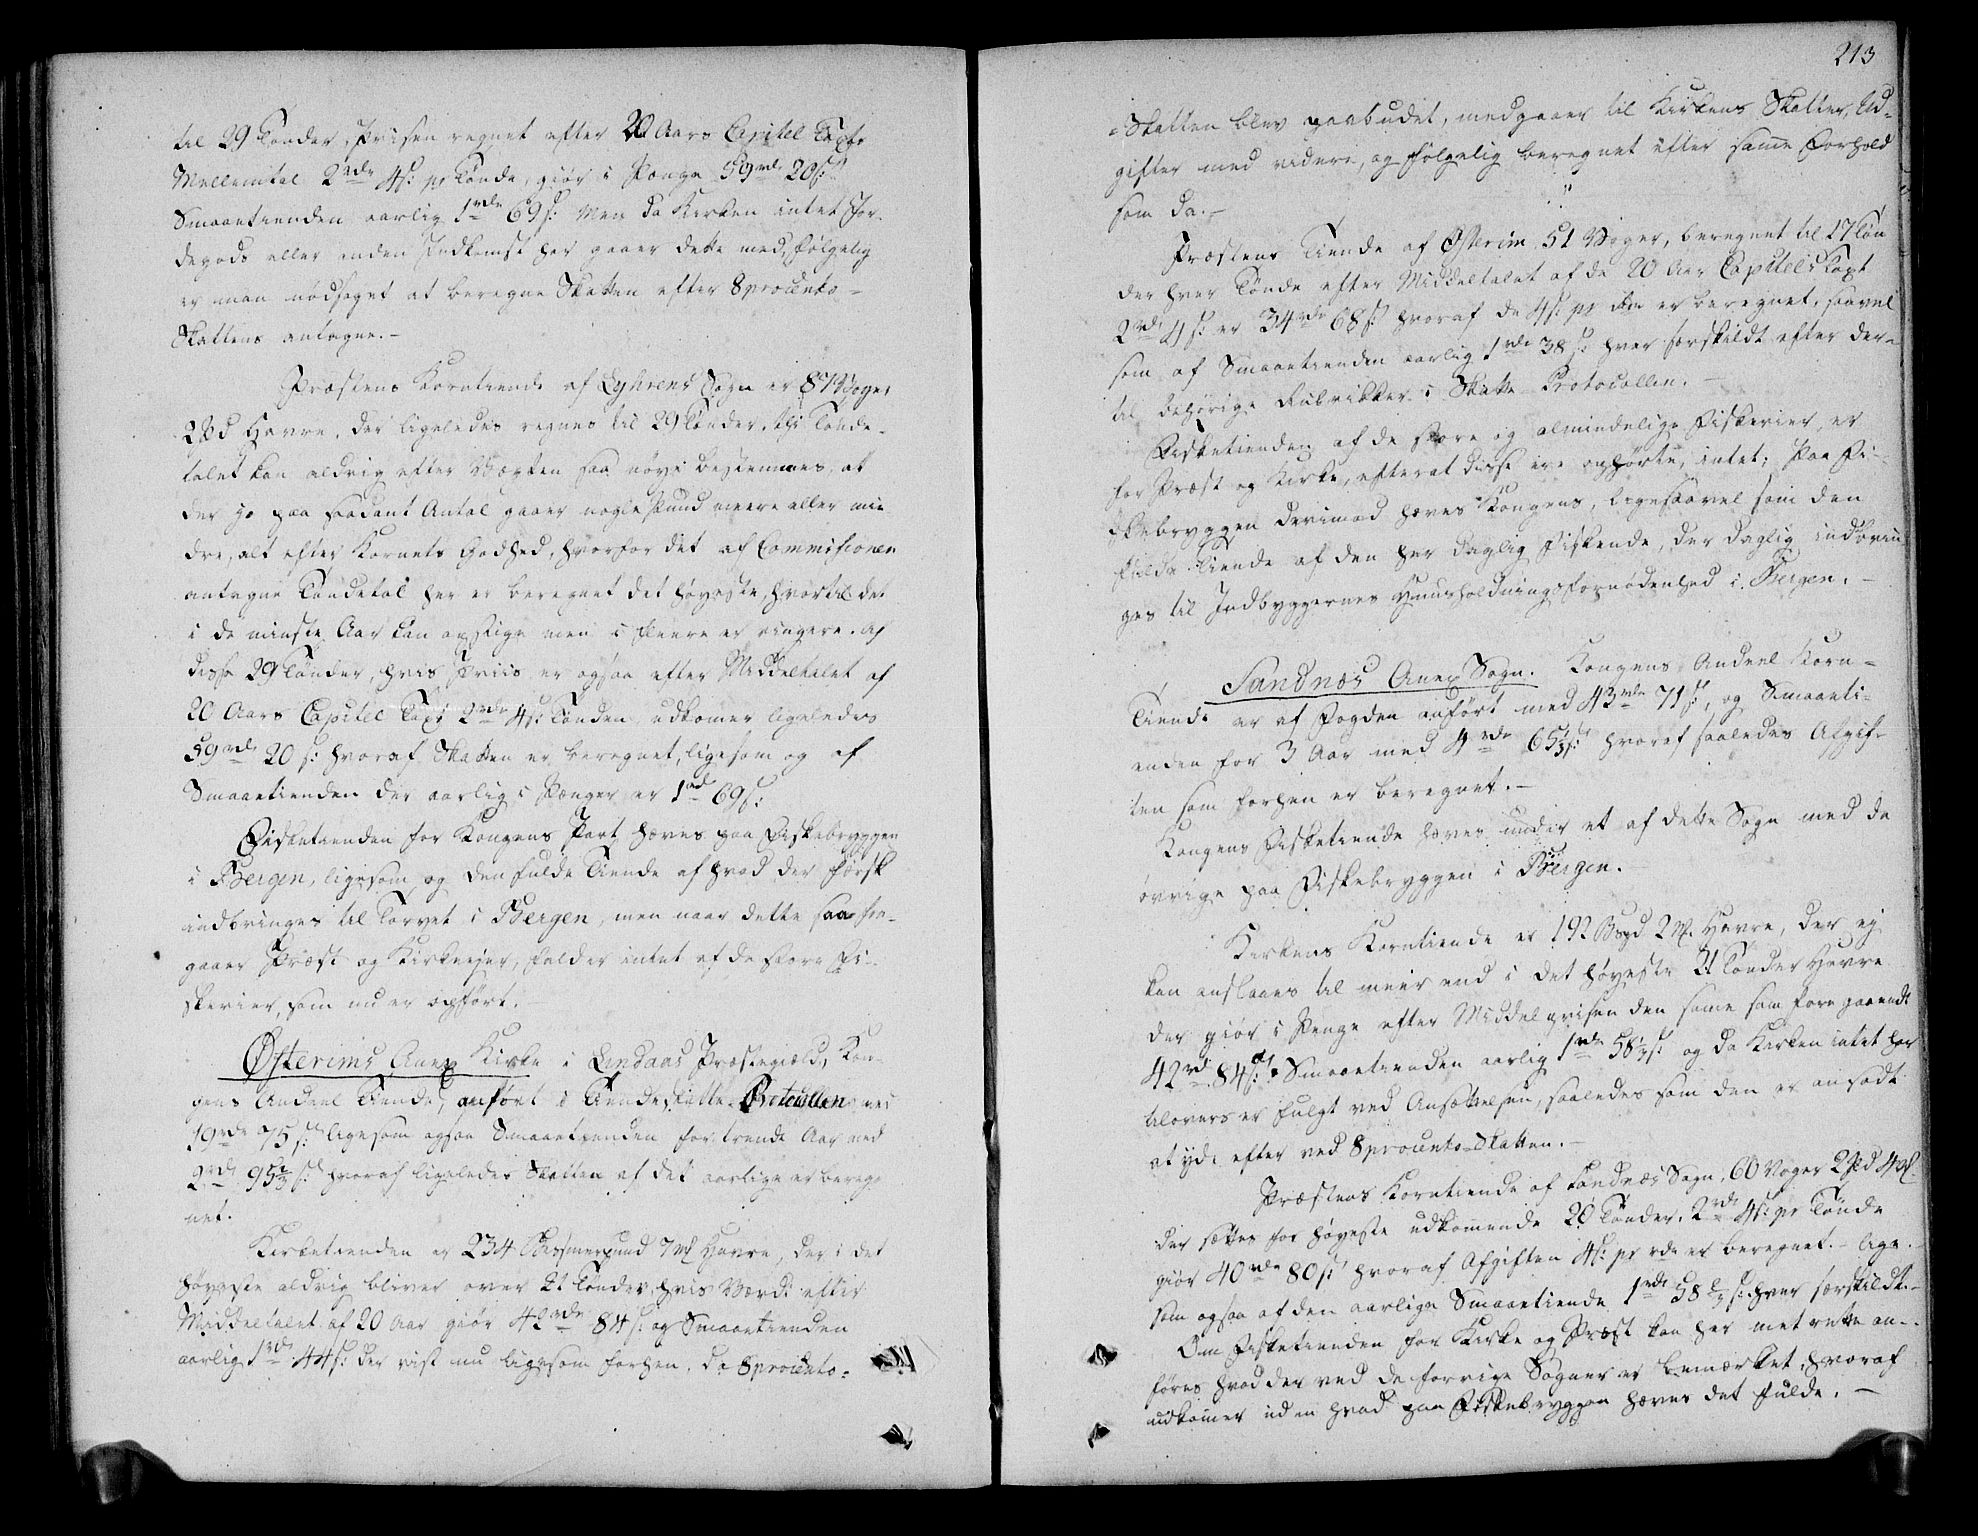 til 29 Tønder, Prisen regnet efter 20 Aars Capitel Taxt
Mellemtal 2 rdr 4 s: pr Tønde, giør i Penge 59 rdr 20 s:
Smaaetienden aarlig 1 rdr 69 s: Men da Kirken intet Jor-
degods eller anden Indkomst har gaaer dette med, følgelig
er man nødsaget at beregne Skatten efter 8 procento-
Skattens antagne.-
Præstens Korntiende af Lyhrens Sogn er 87 Voger
2 Pd Havre, der ligeledes regnes til 29 Tønder, thi Tønde-
talet kan aldrig efter Vægten saa nøye bestemmes, at
der jo paa saadant Antal gaaer nogle Pund meere eller min
dre, alt efter Kornets Godhed, hvorfor det af Commissionen
antagne Tøndetal her er beregnet det høyeste, hvortil det
i de minste Aar kan opstige men i fleere er ringere. af
disse 29 Tønder, hvis Priis er ogsaa efter Middeltalet af
20 Aars Capitel Taxt 2 rdr 4 s: Tønden udkomer ligeledes
59 rdr 20 s: hvoraf Skatten er beregnet, ligesom og af
Smaaetienden der aarlig i Penger er 1 rd 69 s:
Fisketienden for Kongens Part hæves paa Fiskebryggen
i Bergen, ligesom og den fulde Tiende af hvad der færsk
indbringes til Torvet i Bergen, men naar dette saa fra-
gaaer Præst og Kirkeejer, falder intet af de store Fi-
skerier, som nu er ophørt.
Østerims Anex Kirke i Lindaas Præstegield, Kon-
gens Andeel Tiende, anført i Tiendeskatte Protocollen med
19 rdr 75 s: ligesom ogsaa Smaaetienden for trende Aar med
2 rdr 95 1/3 s: hvoraf ligeledes Skatten af det aarlige er bereg-
net.
Kirketienden er 234 Bissmerpund 7 mk Havre, der i det
høyeste aldrig bliver over 21 Tønder, hvis Værdi efter
Middeltalet af 20 Aar giør 42 rdr 84 s: og Smaaetienden
aarlig 1 rdr 44 s: der vist nu ligesom forhen, da 8 procento-
213
-Skatten blev paabudet, medgaaer til Kirkens Skatter, Ud-
gifter med videre, og følgelig beregnet efter samme Forhold
som da.-
Præstens Tiende af Østerim 51 Voger, beregnet til 17 Tøn
der hver Tønde efter Middeltalet af de 20 Aar Capitels Taxt
2 rdr 4 s: er 34 rdr 68 s: hvoraf de 4 s: pr rdr er beregnet, saavel
som af Smaaetienden aarlig 1 rdr 38 s: hver særskildt efter der-
til behørige Rubrikker i Skatte Protocollen.-
Fisketienden af de store og almindelige Fiskerier, er
for Præst og Kirke, efterat disse ere ophørte, intet; Paa Fi-
skebryggen derimod hæves Kongens, ligesaavel som den
fulde Tiende af den her daglig Fiskende, der daglig indbrin
ges til Indbyggernes Huusholdningsfornødenhed i Bergen.-
Sandnæs Anex Sogn. Kongens Andeel Korn-
Tiende er af Fogden anført med 43 rdr 71 s:, og Smaaeti-
enden for 3 Aar med 4 rdr 65 1/3 s: hvoraf saaledes Afgif-
ten som forhen er beregnet.-
Kongens Fisketiende hæves under et af dette Sogn med de
øvrige paa Fiskebryggen i Bergen.
Kirkens Korntiende er 192 Bspd 2 mk. Havre, der ej
kan anslaaes til meer end i det høyeste 21 Tønder Havre
der giør i Penge efter Middelprisen den samme som foregaaende
42 rd 84 s: Smaaetienden aarlig 1 rdr 58 1/3 s: og da Kirken intet har
tilovers er fulgt ved Ansættelsen, saaledes som den er ansadt
at yde efter ved 8 procento-Skatten.-
Præstens Korntiende af Sandnæs Sogn, 60 Voger 2 Pd 4 mk
der sættes for høyeste udkomende 20 Tønder, 2 rdr 4 s: pr Tønde
giør 40 rdr 80 s: hvoraf Afgiften 4 s: pr rdr er beregnet.- lige-
som ogsaa af den aarlige Smaaetiende 1 rdr 58 2/3 s: hver særskildt.-
Om Fisketienden for Kirke og Præst kan her med rette an-
føres hvad der ved de forrige Sogner er bemærket, hvoraf
udkomer uden hvad paa Fiskebryggen hæves det fulde.-